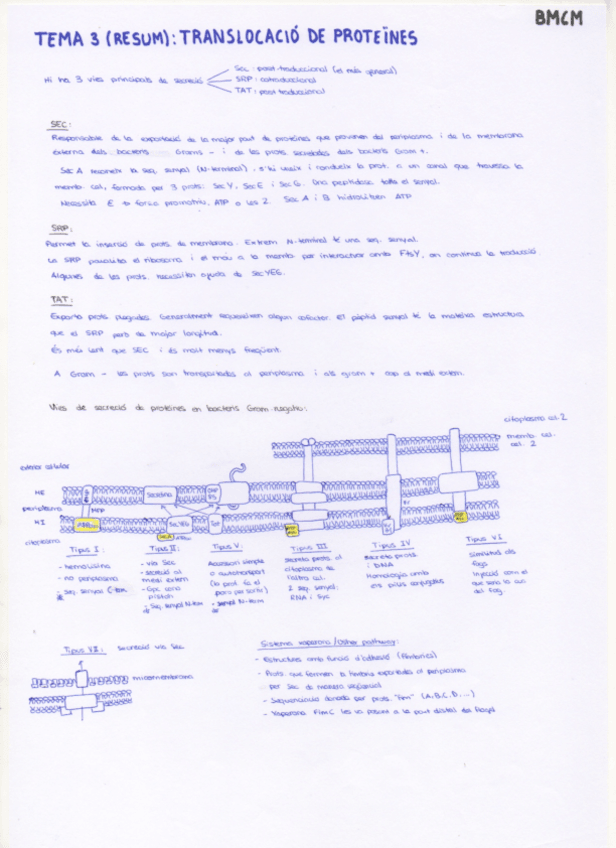 BMCM
TEMA 3 (RESUM): TRANSLOCACIÓ DE PROTEÏNES
Hi ha 3 vies principals de secreció
Sec: post-traduccional (el més general)
SRP: cotraduccional
TAT: post traduccional
SEC:
Responsable de la exportació de la major part de proteïnes que provenen del periplasma i de la membrana
externa dels bacteris Grams - i de les prots secretades dels bacteris Gram +.
Sec A reconeix la seq. senyal (N-terminal), s'hi uneix i condueix la prot. a un canal que travessa la
memb. cel, formada per 3 prots: Sec Y, Sec E i Sec G. Una peptidasa talla el senyal.
Necessita E → força promotriu, ATP o les 2. Sec A i B hidrolitzen ATP
SRP:
Permet la inserció de prots de membrana. Extrem N-terminal té una seq. senyal.
La SRP paralitza el ribosoma i el mou a la memb. per interactuar amb FtsY, on continua la traducció.
Algunes de les prots. necessiten ajuda de SecYEG.
TAT:
Exporta prots plegades. Generalment requereixen algun cofactor. El pèptid senyal té la mateixa estructura
que el SRP però de major longitud.
És més lent que SEC i és molt menys freqüent.
A Gram - les prots són transportades al periplasma i als gram + cap al medi extern.
Vies de secreció de proteïnes en bacteris Gram negatiu:
citoplasma cel. 2
memb. cel.
cel. 2
exterior cel·lular
ME
periplasma
MI
citoplasma
MFP
Secretina
SecYEG
Sec A
Tipus I:
- hemolisina
- no periplasma
- seq. senyal C-term
Tipus II:
- via Sec
- secreció al
medi extern
- Gpc. seria
pistó
- Seq. senyal N-term
Tipus V:
Accessori simple
o autotransport
(la prot. fa el
porus per sortir)
- senyal N-term
Tipus III
Secreta prots. al
citoplasma de
l'altra cel.
2 seq. senyal:
RNA i Syc
Tipus IV
Secreta prots
i DNA
Homologia amb
els pilus conjugatius
Tipus VI
similitud als
fags
Injecció com el
que seria la cua
del fag.
Tipus VII: Secreció via Sec
micomembrana
Sistema xaperona/Usher pathway:
- Estructures amb funció d'adhesió (fímbries)
- Prots que formen la fímbria exportades al periplasma
per Sec de manera seqüencial
- Seqüenciació donada per prots. "Fim" (A, B, C, D, ...)
- Xaperona FimC les va posant a la part distal del flagel